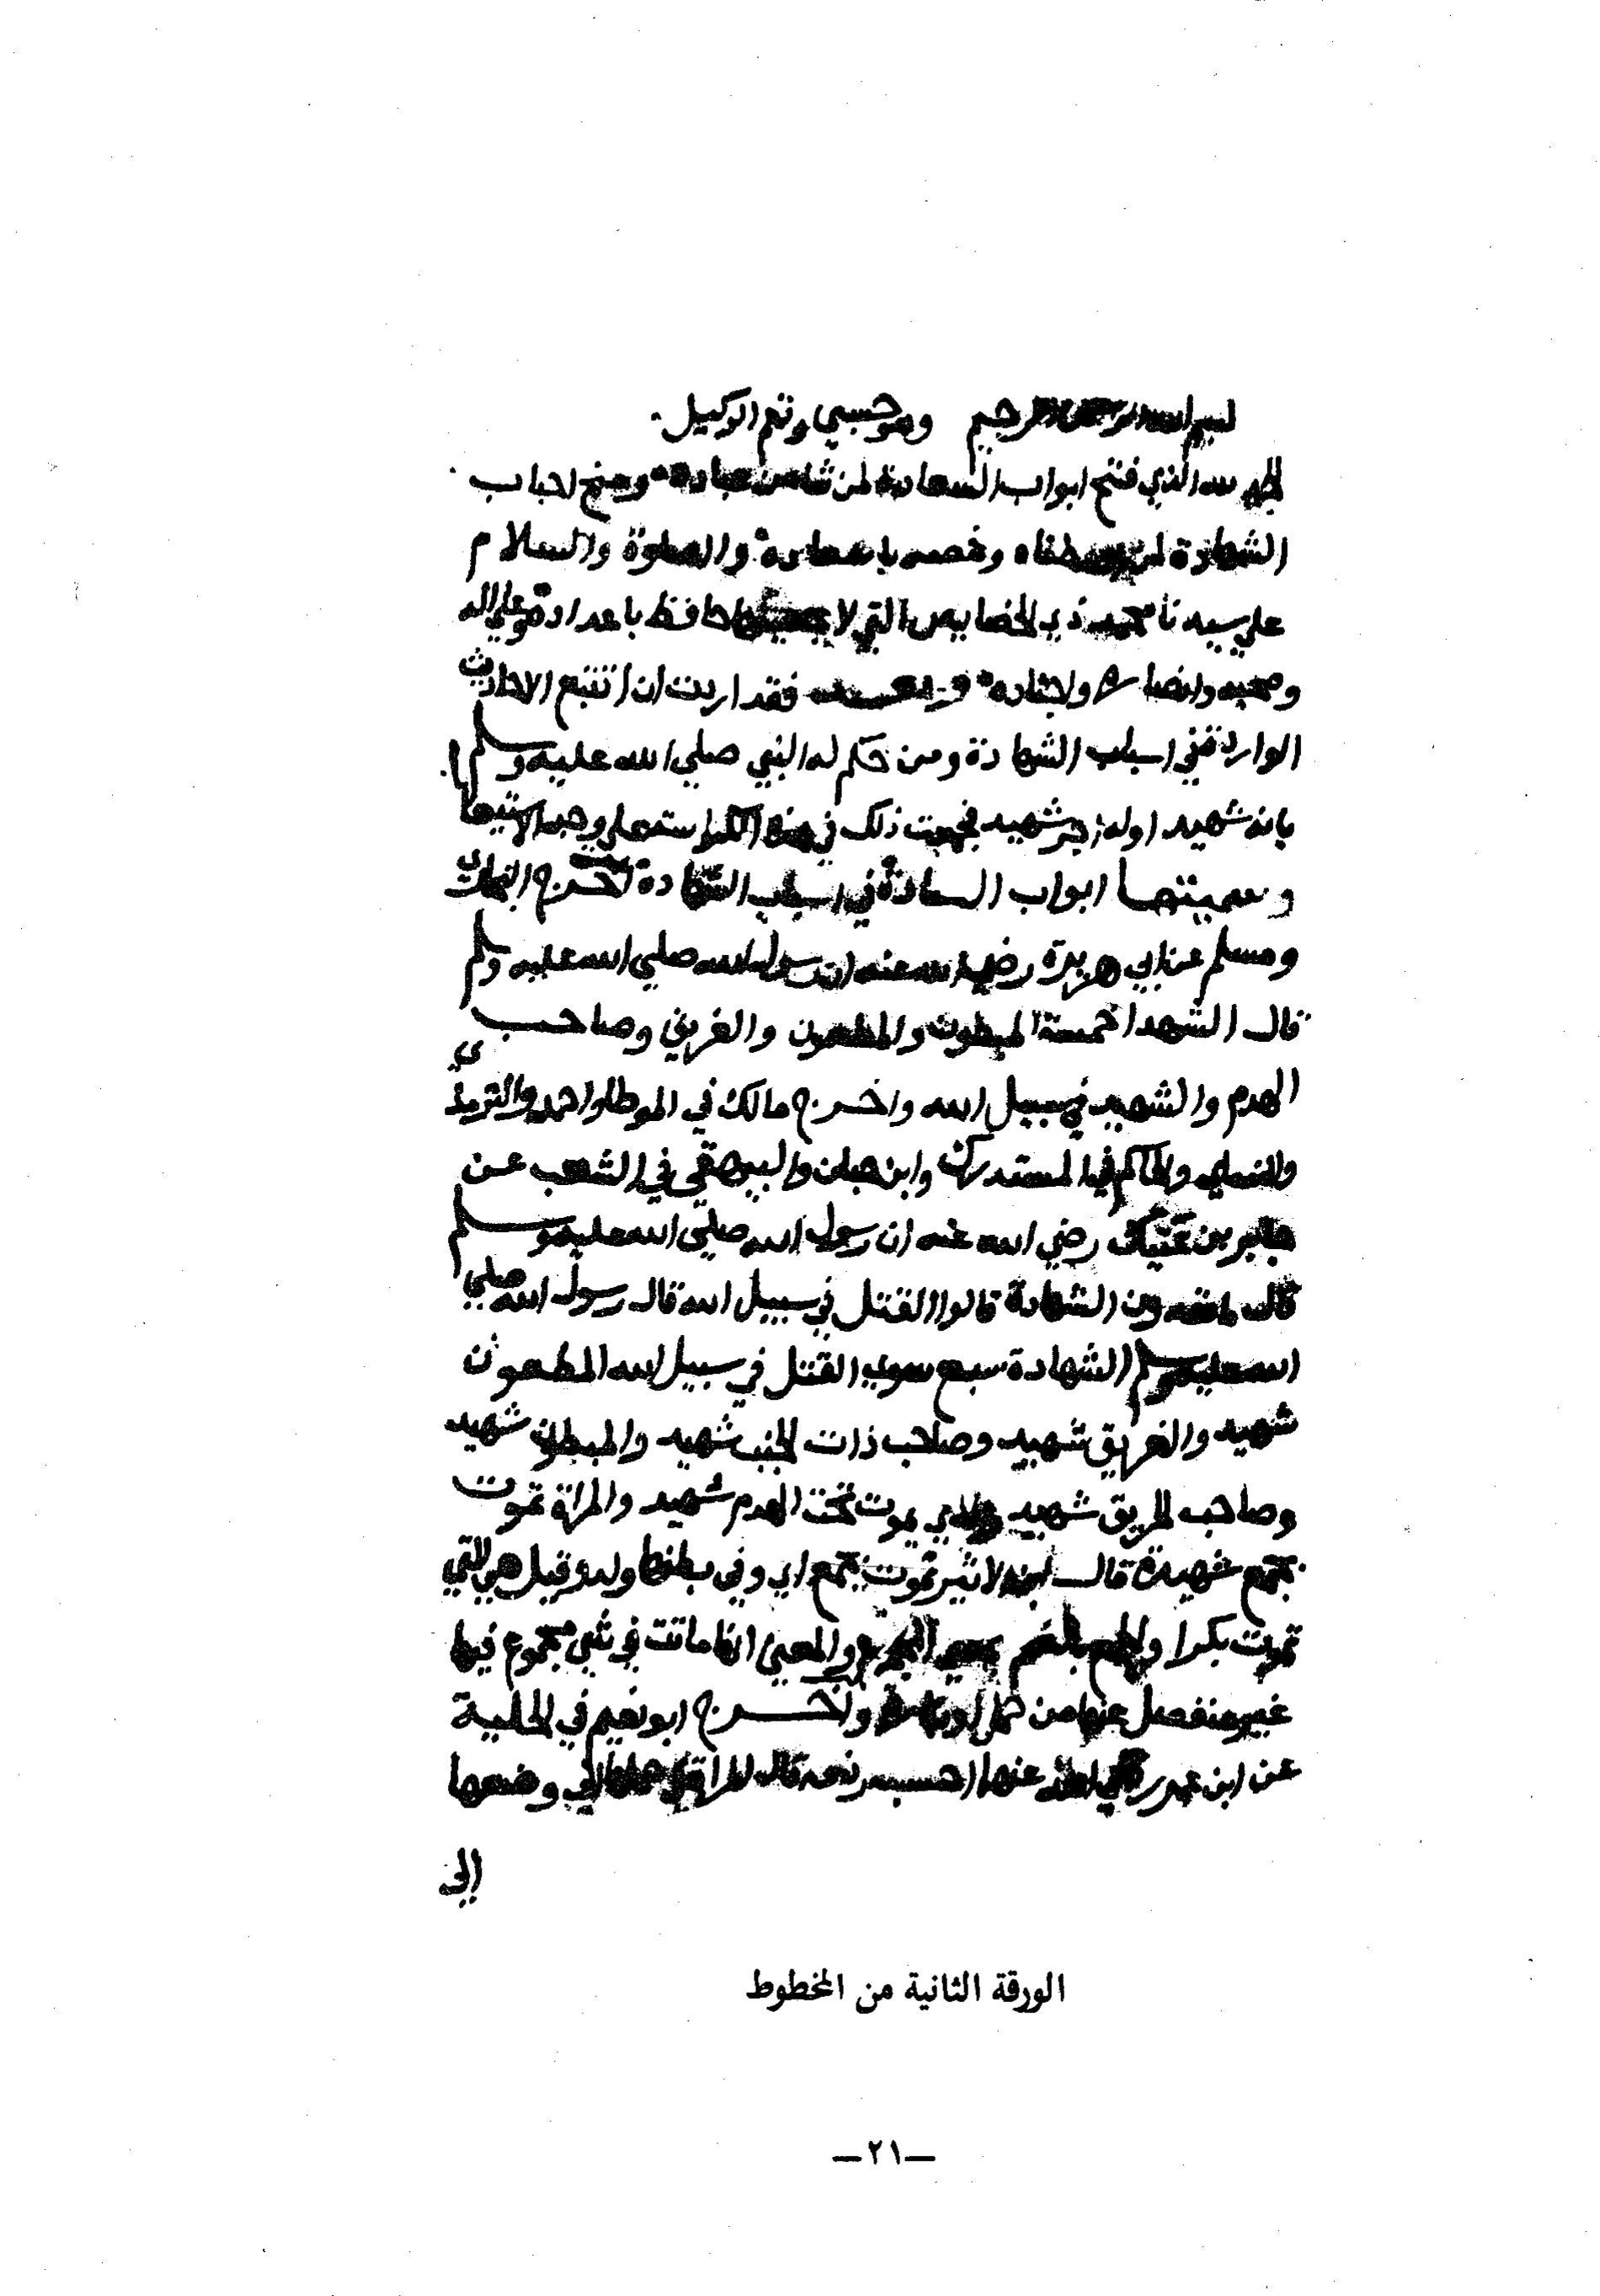 بسم الله الرحمن الرحيم وهو حسبي ونعم الوكيل
الحمد لله الذي فتح ابواب السعادة لمن شا من عباده ومنح اسباب
الشهادة لمن اصطفاه وخصه باسعاده والصلوة والسلام
علي سيدنا محمد ذي الخصايص التي لا حافظ باعداده وعلي اله
وصحبه وانصاره واجناده وبعد فقد اردت ان اتتبع الاحاديث
الواردة في اسباب الشهادة ومن حكم له النبي صلي الله عليه وسلم
بانه شهيد او له اجر شهيد فجمعت ذلك في هذه الكراسة علي وجه الاستيعاب
وسميتها ابواب السعادة في اسباب الشهادة اخرج البخاري
ومسلم عن ابي هريرة رضي الله عنه ان رسول الله صلي الله عليه وسلم
قال الشهدا خمسة المبطون والمطعون والغريق وصاحب
الهدم والشهيد في سبيل الله واخرج مالك في الموطا واحمد والترمذي
والنسايي والحاكم في المستدرك وابن حبان والبيهقي في الشعب عن
جابر بن عتيك رضي الله عنه ان رسول الله صلي الله عليه وسلم
قال ما تعدون الشهادة قالوا القتل في سبيل الله قال رسول الله صلي
الله عليه وسلم الشهادة سبع سوي القتل في سبيل الله المطعون
شهيد والغريق شهيد وصاحب ذات الجنب شهيد والمبطون شهيد
وصاحب الحريق شهيد والذي يموت تحت الهدم شهيد والمراة تموت
بجمع شهيدة قال ابن الاثير تموت بجمع اي وفي بطنها ولد وقيل هي التي
تموت بكرا والجمع بالضم بمعني المجموع والمعني انها ماتت في شي مجموع فيها
غير منفصل عنها من حمل او بكارة واخرج ابو نعيم في الحلية
عن ابن عمر رضي الله عنهما احسبه رفعه قال للمراة في حملها الي وضعها
الي
الورقة الثانية من المخطوط
—٢١—